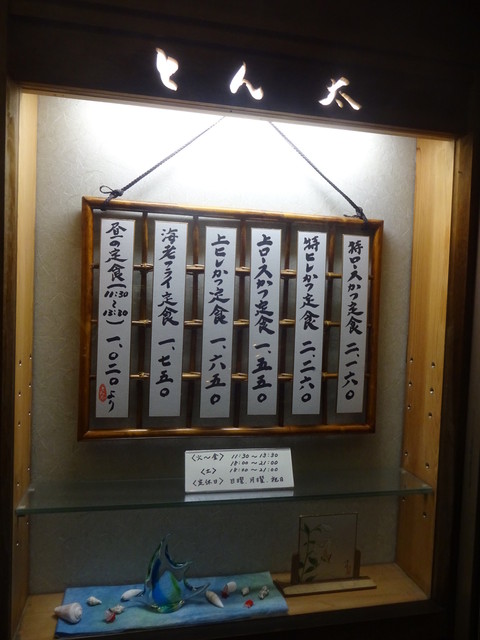 とん太
特ロースかつ定食 二、一六〇
特ヒレかつ定食 二、二六〇
上ロースかつ定食 一、五五〇
上ヒレかつ定食 一、六五〇
海老フライ定食 一、七五〇
昼の定食(11:30〜13:30) 一、〇二〇より
〈火〜金〉 11:30〜13:30
18:00〜21:00
〈土〉 18:00〜21:00
〈定休日〉 日曜、月曜、祝日